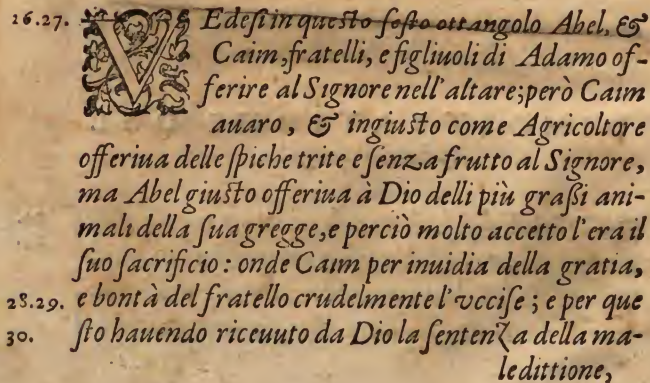 16.27. VEdesi in questo sesto ottangolo Abel, &
Caim, fratelli, e figliuoli di Adamo of-
ferire al Signore nell'altare; però Caim
auaro, & ingiusto come Agricoltore
offeriua delle spiche trite e senza frutto al Signore,
ma Abel giusto offeriua à Dio delli più grassi ani-
mali della sua gregge, e perciò molto accetto l'era il
suo sacrificio: onde Caim per inuidia della gratia,
28.29. e bontà del fratello crudelmente l'vccise; e per que
30. sto hauendo riceuuto da Dio la sentenza della ma-
ledittione,